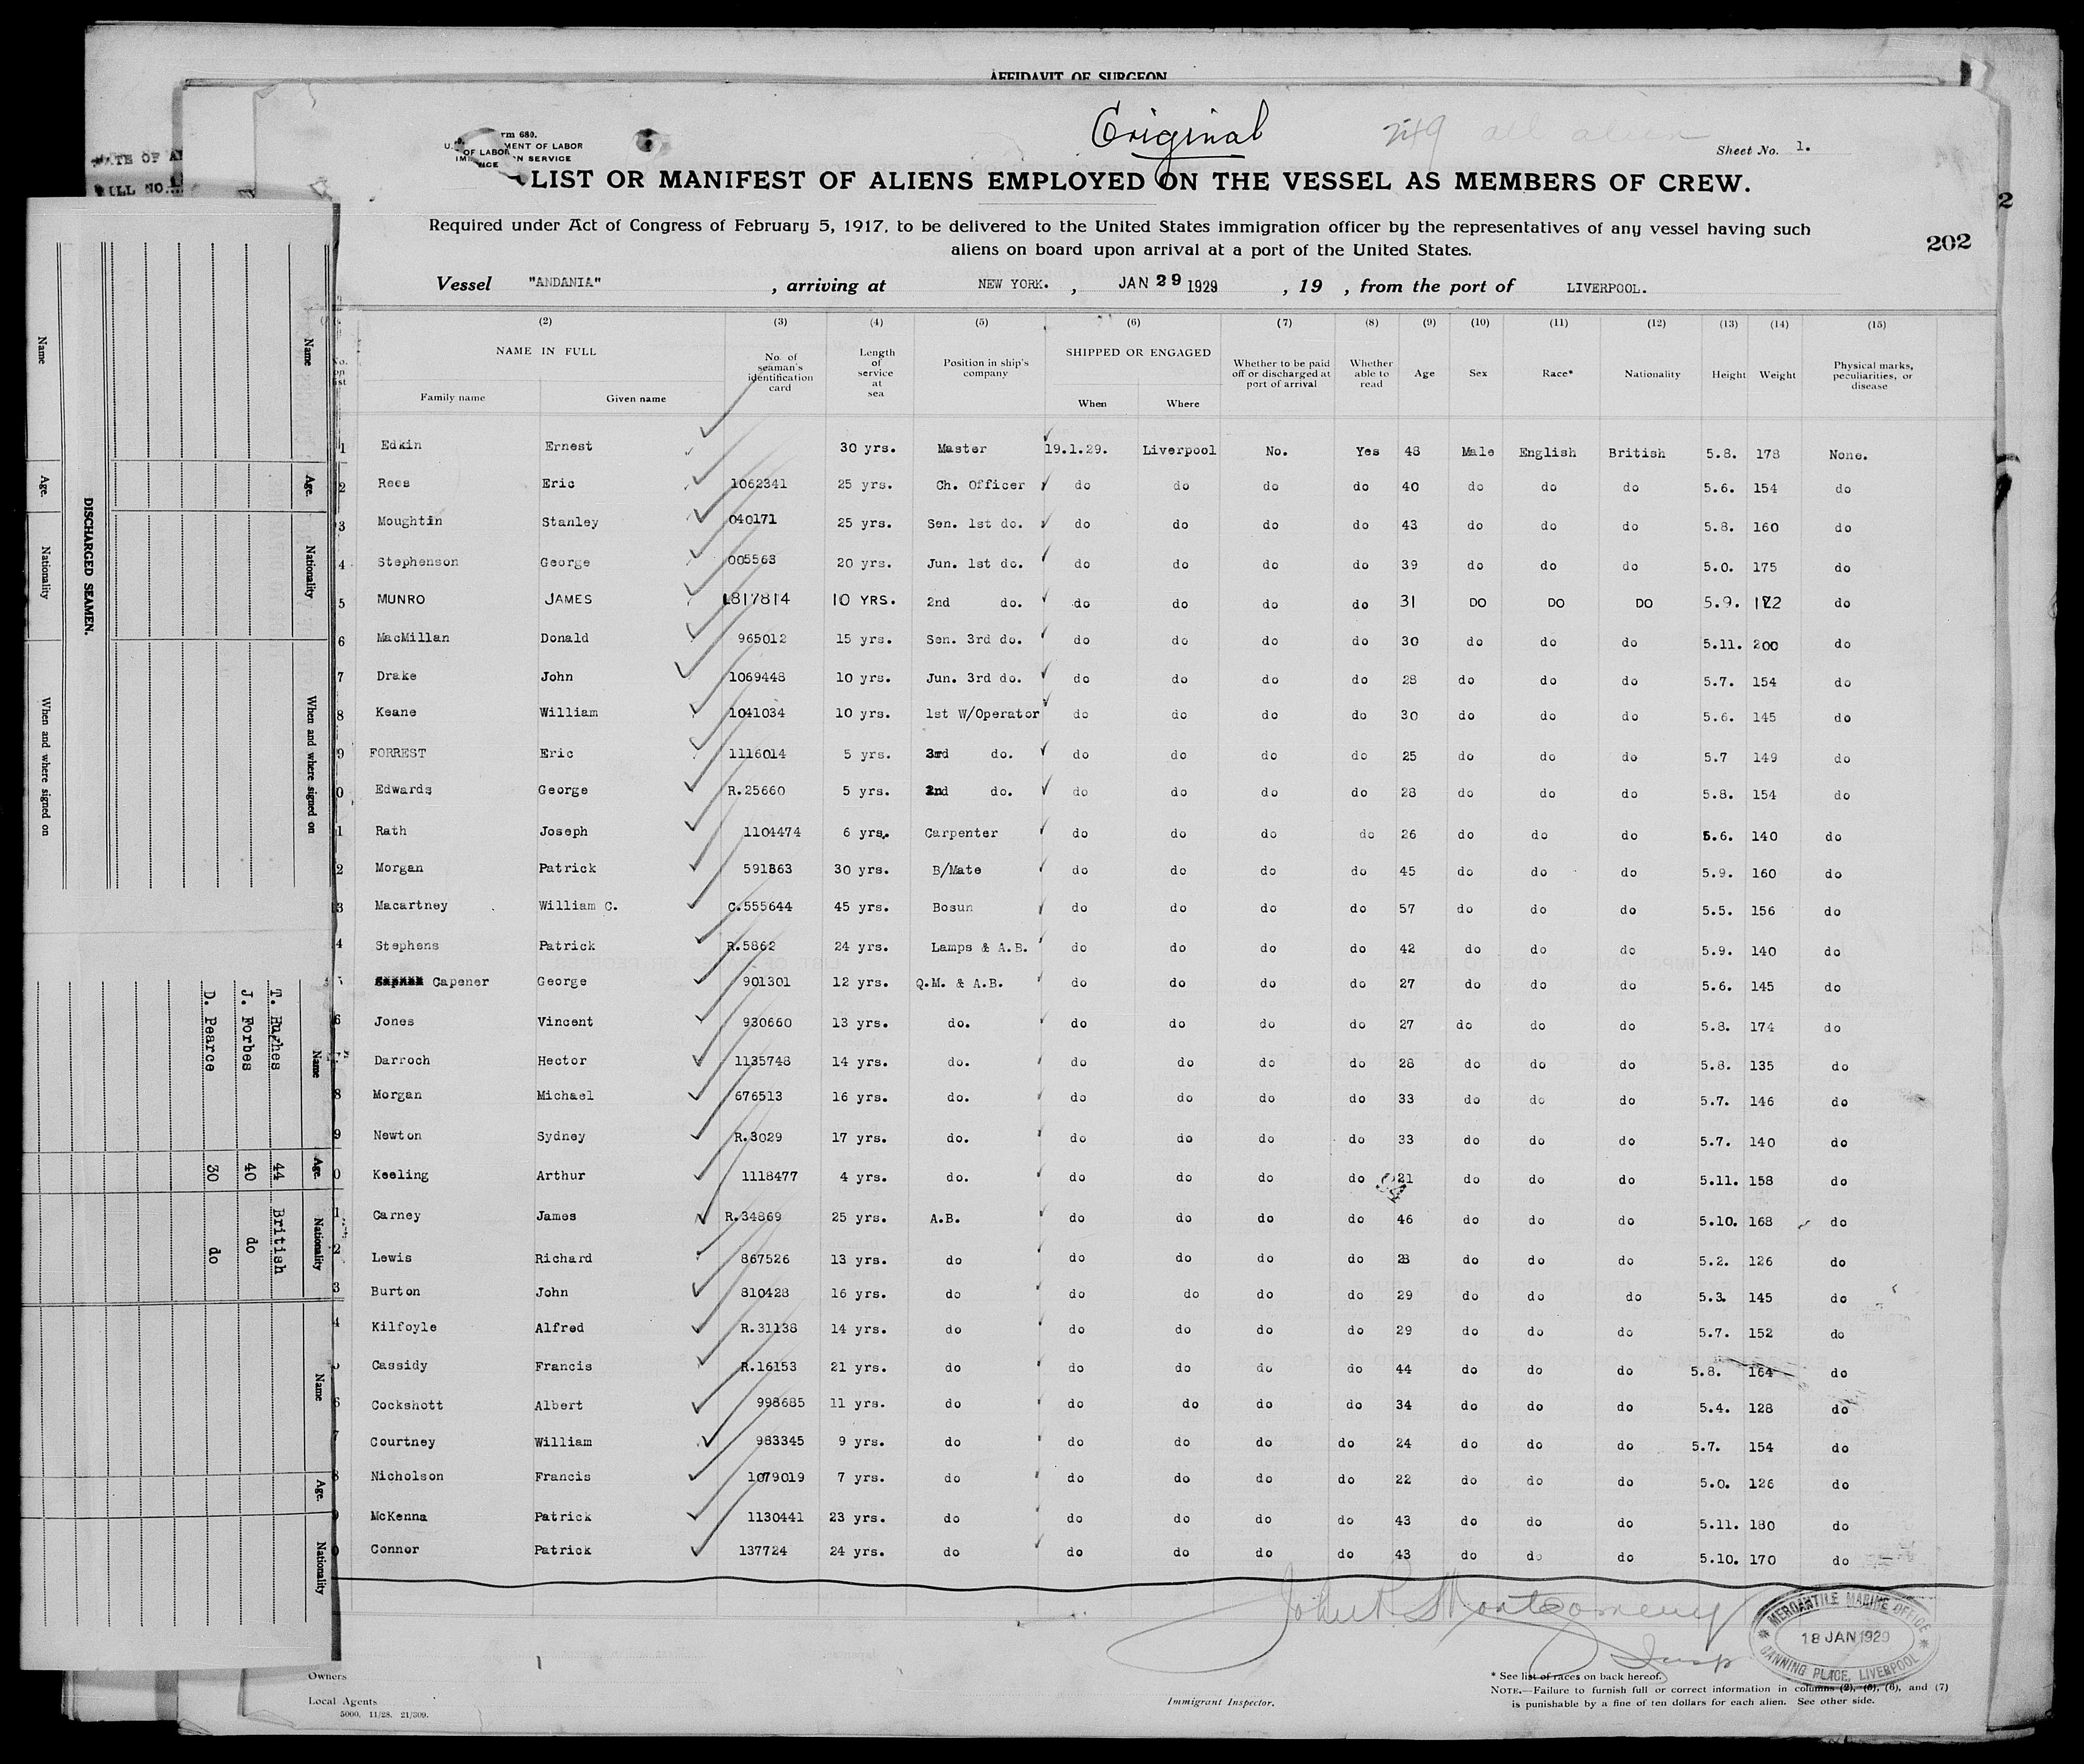 AFFIDAVIT OF SURGEON
Original
249 all alien
Sheet No. 1.
rm 680.
MENT OF LABOR
OF LABOR
N SERVICE
LIST OR MANIFEST OF ALIENS EMPLOYED ON THE VESSEL AS MEMBERS OF CREW.
Required under Act of Congress of February 5, 1917, to be delivered to the United States immigration officer by the representatives of any vessel having such
aliens on board upon arrival at a port of the United States.
2
202
Vessel "ANDANIA" , arriving at NEW YORK. , JAN 29 1929 , 19 , from the port of LIVERPOOL.
(2) (3) (4) (5) (6) (7) (8) (9) (10) (11) (12) (13) (14) (15)
No. on list
NAME IN FULL
Family name Given name
No. of seaman's identification card
Length of service at sea
Position in ship's company
SHIPPED OR ENGAGED
When Where
Whether to be paid off or discharged at port of arrival
Whether able to read
Age Sex Race* Nationality Height Weight
Physical marks, peculiarities, or disease
1 Edkin Ernest 30 yrs. Master 19.1.29. Liverpool No. Yes 48 Male English British 5.8. 178 None.
2 Rees Eric 1062341 25 yrs. Ch. Officer do do do do 40 do do do 5.6. 154 do
3 Moughtin Stanley 040171 25 yrs. Sen. 1st do. do do do do 43 do do do 5.8. 160 do
4 Stephenson George 005563 20 yrs. Jun. 1st do. do do do do 39 do do do 5.0. 175 do
5 MUNRO JAMES 817814 10 YRS. 2nd do. do do do do 31 DO DO DO 5.9. 172 do
6 MacMillan Donald 965012 15 yrs. Sen. 3rd do. do do do do 30 do do do 5.11. 200 do
7 Drake John 1069448 10 yrs. Jun. 3rd do. do do do do 28 do do do 5.7. 154 do
8 Keane William 1041034 10 yrs. 1st W/Operator do do do do 30 do do do 5.6. 145 do
9 FORREST Eric 1116014 5 yrs. 3rd do. do do do do 25 do do do 5.7 149 do
0 Edwards George R.25660 5 yrs. 2nd do. do do do do 28 do do do 5.8. 154 do
1 Rath Joseph 1104474 6 yrs. Carpenter do do do do 26 do do do 5.6. 140 do
2 Morgan Patrick 591863 30 yrs. B/Mate do do do do 45 do do do 5.9. 160 do
3 Macartney William C. C.555644 45 yrs. Bosun do do do do 57 do do do 5.5. 156 do
4 Stephens Patrick R.5862 24 yrs. Lamps & A.B. do do do do 42 do do do 5.9. 140 do
Capener George 901301 12 yrs. Q.M. & A.B. do do do do 27 do do do 5.6. 145 do
6 Jones Vincent 930660 13 yrs. do. do do do do 27 do do do 5.8. 174 do
Darroch Hector 1135748 14 yrs. do. do do do do 28 do do do 5.8. 135 do
8 Morgan Michael 676513 16 yrs. do. do do do do 33 do do do 5.7. 146 do
9 Newton Sydney R.3029 17 yrs. do. do do do do 33 do do do 5.7. 140 do
0 Keeling Arthur 1118477 4 yrs. do. do do do do 21 do do do 5.11. 158 do
1 Carney James R.34869 25 yrs. A.B. do do do do 46 do do do 5.10. 168 do
2 Lewis Richard 867526 13 yrs. do do do do do 28 do do do 5.2. 126 do
3 Burton John 810428 16 yrs. do do do do do 29 do do do 5.3. 145 do
4 Kilfoyle Alfred R.31138 14 yrs. do do do do do 29 do do do 5.7. 152 do
Cassidy Francis R.16153 21 yrs. do do do do do 44 do do do 5.8. 164 do
6 Cockshott Albert 998685 11 yrs. do do do do do 34 do do do 5.4. 128 do
7 Courtney William 983345 9 yrs. do do do do do 24 do do do 5.7. 154 do
8 Nicholson Francis 1079019 7 yrs. do do do do do 22 do do do 5.0. 126 do
McKenna Patrick 1130441 23 yrs. do do do do do 43 do do do 5.11. 180 do
0 Connor Patrick 137724 24 yrs. do do do do do 43 do do do 5.10. 170 do
John R. Montgomery
Insp
MERCANTILE MARINE OFFICE
18 JAN 1929
CANNING PLACE, LIVERPOOL
Owners
Local Agents
5000. 11/28. 21/309.
Immigrant Inspector.
* See list of races on back hereof.
NOTE.—Failure to furnish full or correct information in columns (2), (5), (6), and (7)
is punishable by a fine of ten dollars for each alien. See other side.
DISCHARGED SEAMEN.
Name Age. Nationality When and where signed on
Name Age. Nationality When and where signed on
Name Age. Nationality
T. Hughes 44 British
J. Forbes 40 do
D. Pearce 30 do
Name Age. Nationality